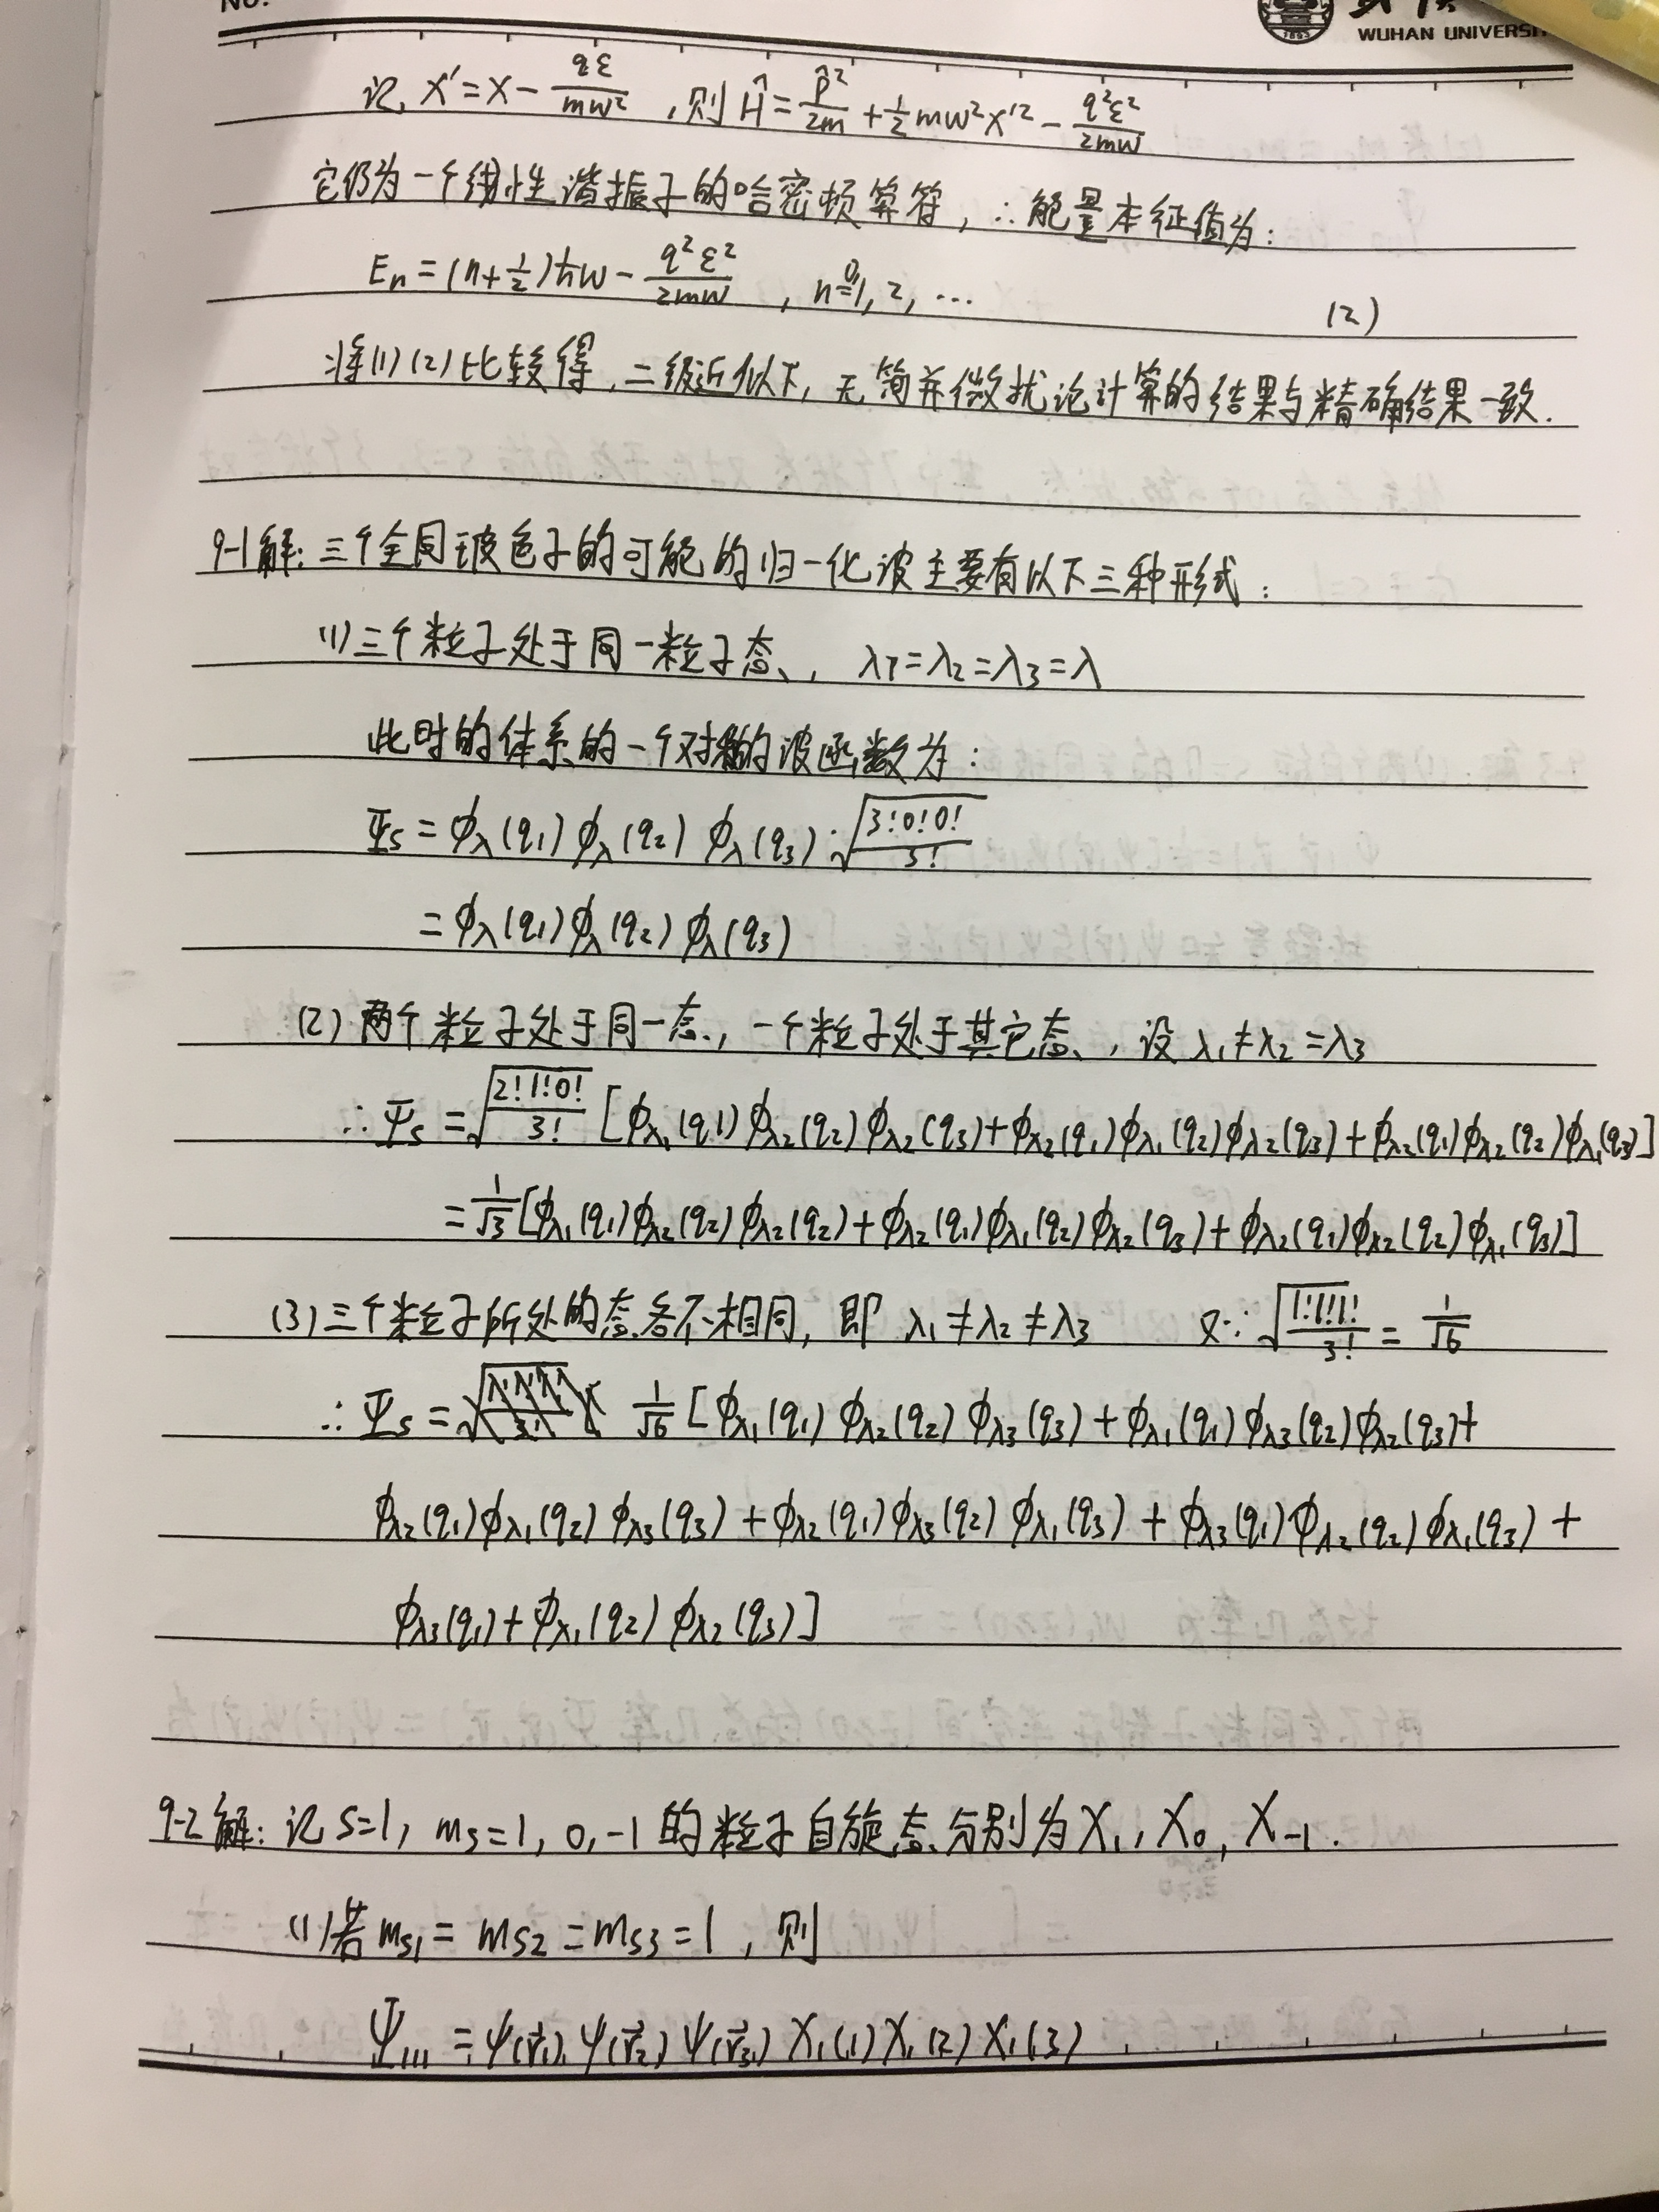 No.
WUHAN UNIVERSI
记 x′=x-\frac{qε}{mw²}, 则 Ĥ=\frac{p̂²}{2m}+\frac{1}{2}mw²x′²-\frac{q²ε²}{2mw}
它仍为一个线性谐振子的哈密顿算符, ∴能量本征值为:
Eₙ=(n+\frac{1}{2})ħw-\frac{q²ε²}{2mw}, n=0,1,2,… (2)
将(1)(2)比较得,二级近似下,无简并微扰论计算的结果与精确结果一致.
9-1解: 三个全同玻色子的可能的归一化波主要有以下三种形式:
(1)三个粒子处于同一粒子态, λ₁=λ₂=λ₃=λ
此时的体系的一个对称的波函数为:
Ψs=ϕλ(q₁)ϕλ(q₂)ϕλ(q₃)·\sqrt{\frac{3!0!0!}{3!}}
=ϕλ(q₁)ϕλ(q₂)ϕλ(q₃)
(2)两个粒子处于同一态,一个粒子处于其它态,设λ₁≠λ₂=λ₃
∴Ψs=\sqrt{\frac{2!1!0!}{3!}}[ϕλ₁(q1)ϕλ₂(q₂)ϕλ₂(q₃)+ϕλ₂(q₁)ϕλ₁(q₂)ϕλ₂(q₃)+ϕλ₂(q₁)ϕλ₂(q₂)ϕλ₁(q₃)]
=\frac{1}{\sqrt{3}}[ϕλ₁(q₁)ϕλ₂(q₂)ϕλ₂(q₂)+ϕλ₂(q₁)ϕλ₁(q₂)ϕλ₂(q₃)+ϕλ₂(q₁)ϕλ₂(q₂)ϕλ₁(q₃)]
(3)三个粒子所处的态各不相同,即 λ₁≠λ₂≠λ₃ 又∵\sqrt{\frac{1!1!1!}{3!}}=\frac{1}{\sqrt{6}}
∴Ψs=\frac{1}{\sqrt{6}}[ϕλ₁(q₁)ϕλ₂(q₂)ϕλ₃(q₃)+ϕλ₁(q₁)ϕλ₃(q₂)ϕλ₂(q₃)+
ϕλ₂(q₁)ϕλ₁(q₂)ϕλ₃(q₃)+ϕλ₂(q₁)ϕλ₃(q₂)ϕλ₁(q₃)+ϕλ₃(q₁)ϕλ₂(q₂)ϕλ₁(q₃)+
ϕλ₃(q₁)+ϕλ₁(q₂)ϕλ₂(q₃)]
9-2解: 记S=1, mₛ=1,0,-1的粒子自旋态分别为X₁,X₀,X₋₁.
(1)若mₛ₁=mₛ₂=mₛ₃=1,则
Ψ₁₁₁=ψ(r⃗₁)ψ(r⃗₂)ψ(r⃗₃)X₁(1)X₁(2)X₁(3)